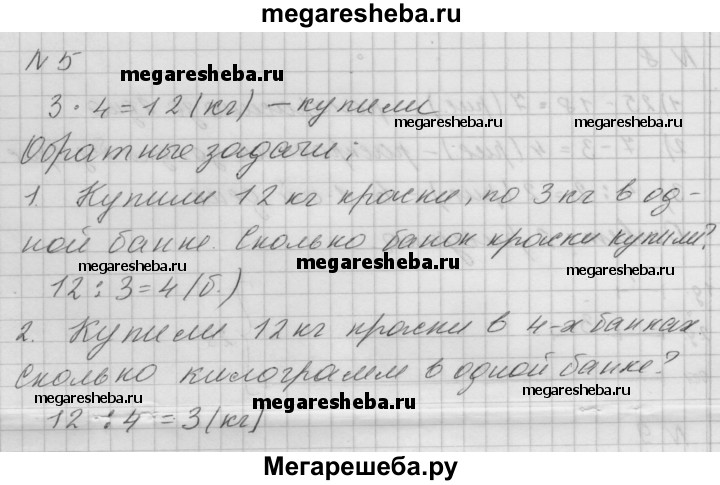 megaresheba.ru
N 5
megaresheba.ru
3 · 4 = 12 (кг) – купили
megaresheba.ru megaresheba.ru
Обратные задачи:
1. Купили 12 кг краски, по 3 кг в од-
ной банке. Сколько банок краски купили?
megaresheba.ru megaresheba.ru megaresheba.ru
12 : 3 = 4 (б.)
2. Купили 12 кг краски в 4-х банках.
Сколько килограмм в одной банке?
megaresheba.ru megaresheba.ru megaresheba.ru
12 : 4 = 3 (кг)
Мегарешеба.ру